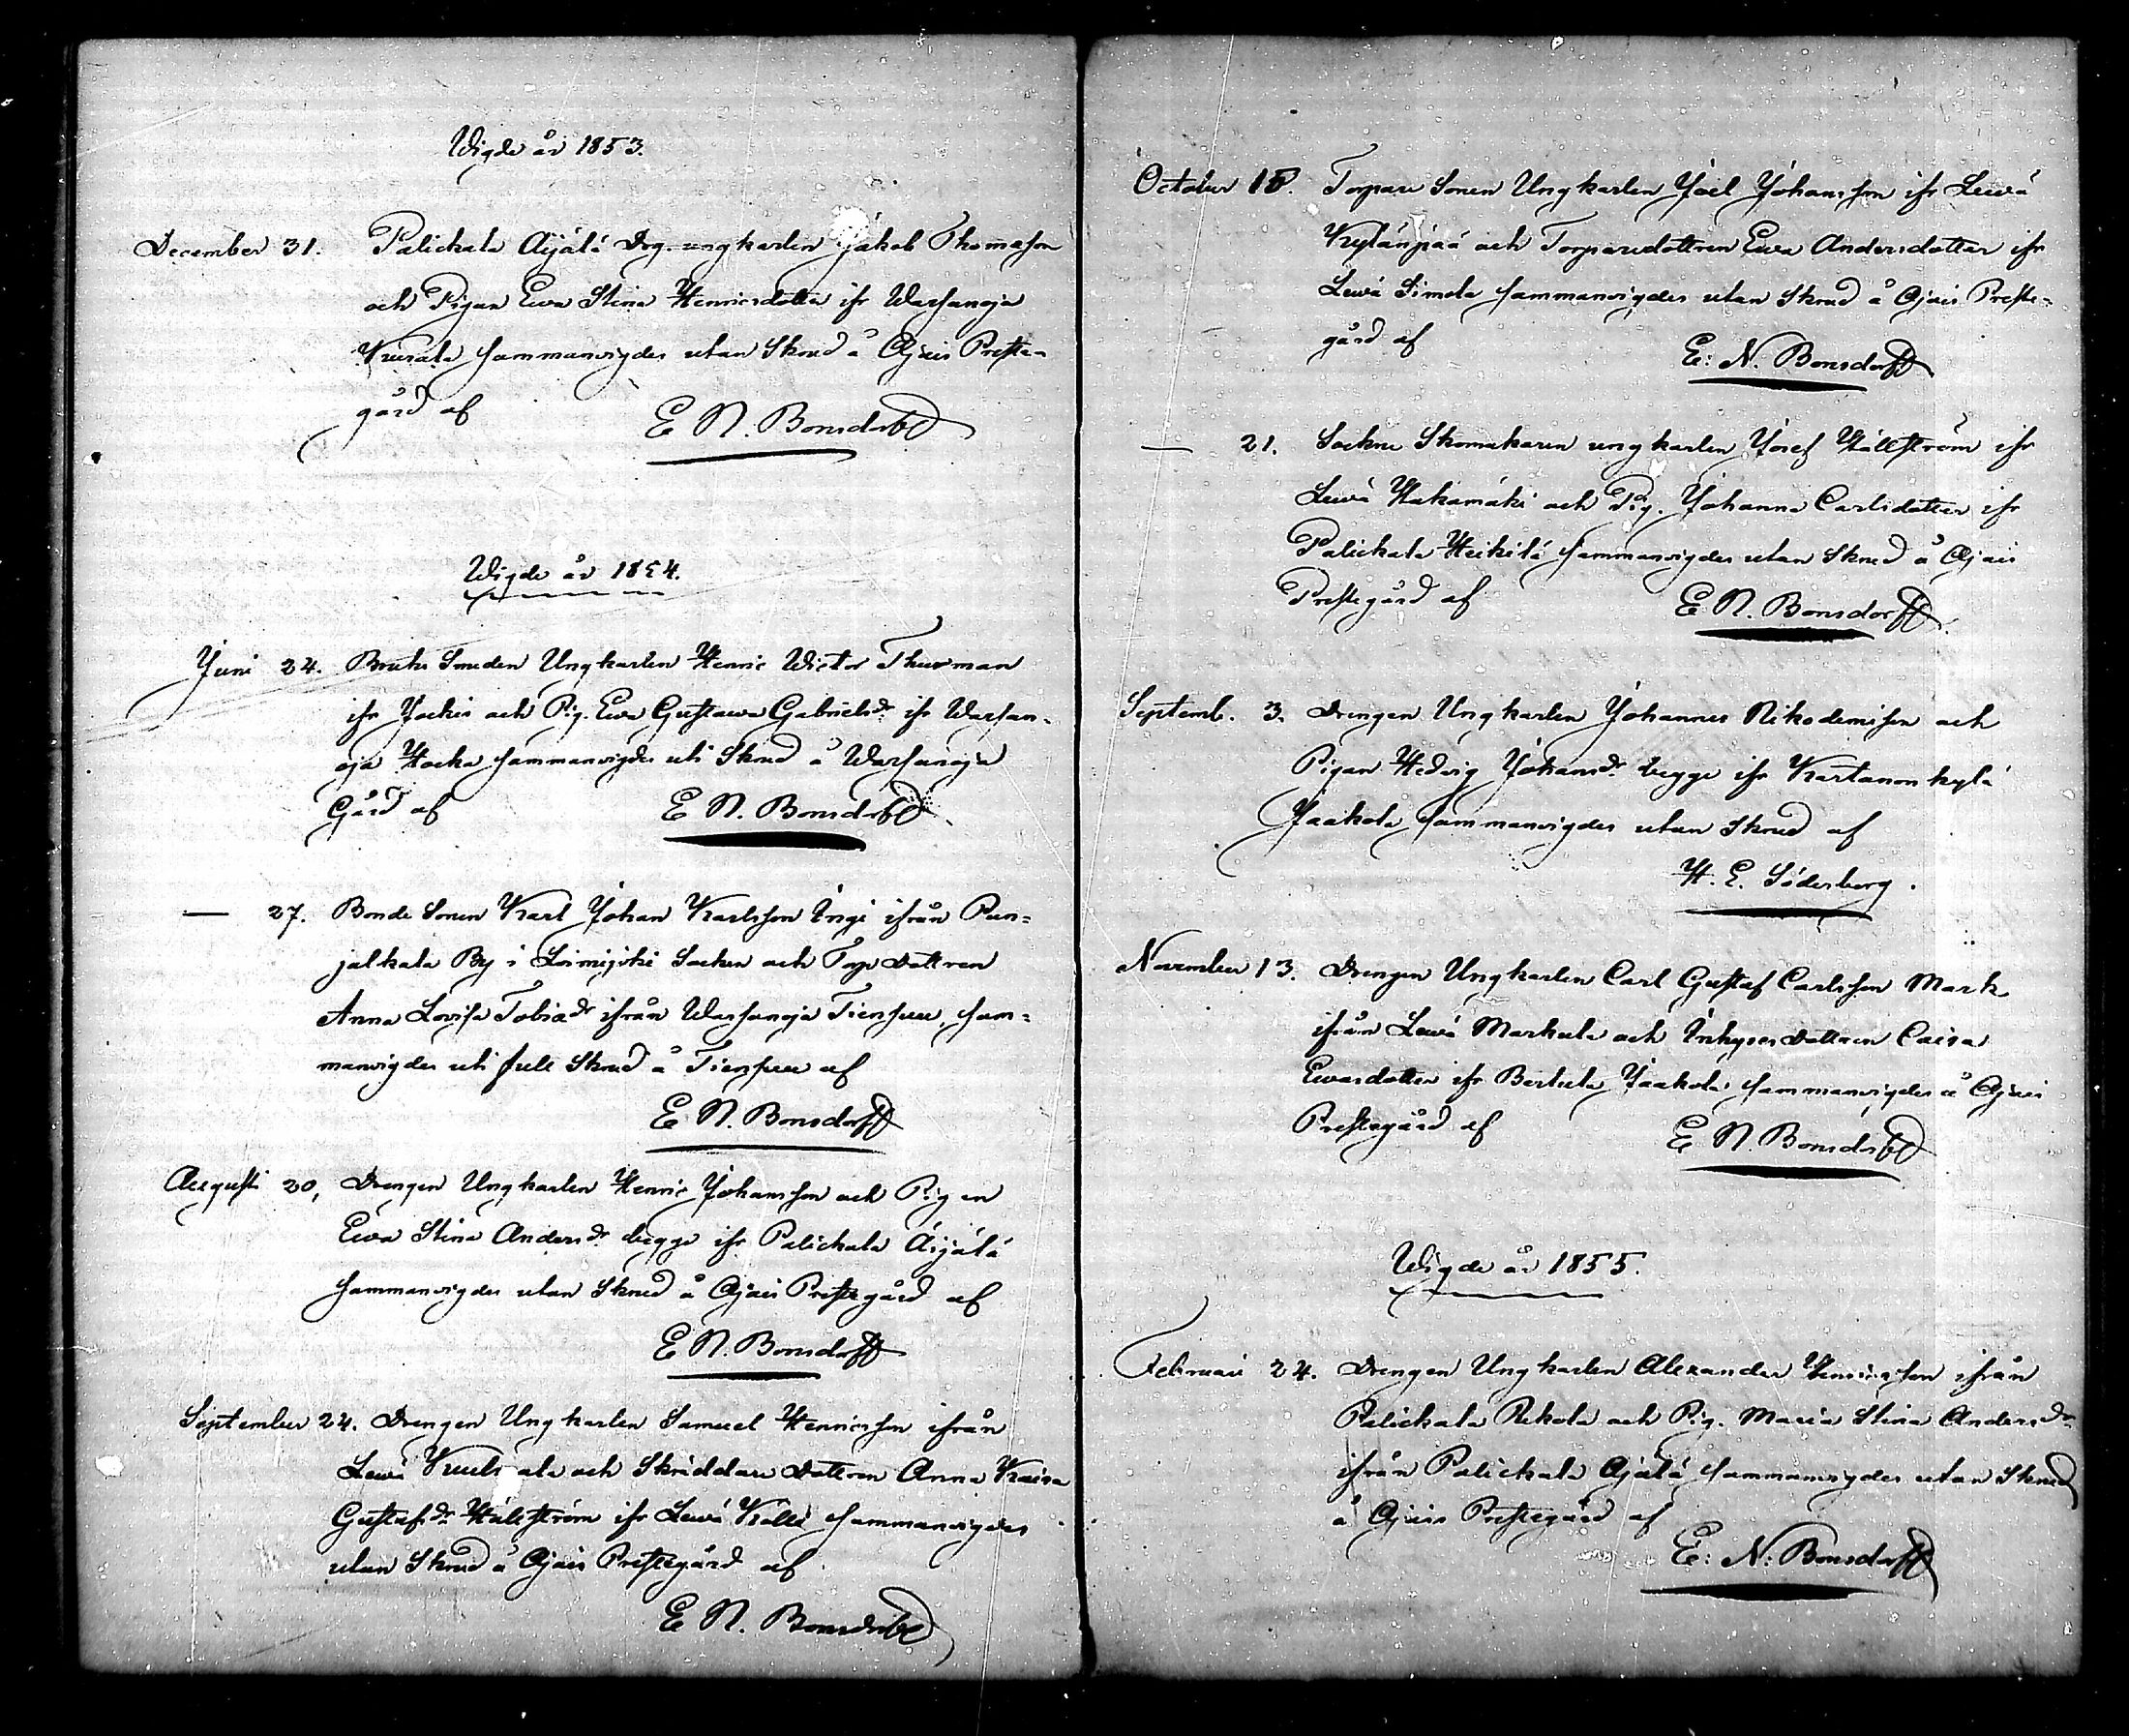 Wigde år 1853.
December 31. Palickala Äijälä Drg. ungkarlen Jakob Thomasson
och Pigan Ewa Stina Henricsdotter ifr Warsanoja
sammanvigdes utan Skrud å Ojais Preste-
gård af E N. Bonsdorff
Wigde år 1854.
Juni 24. Bruks Smeden Ungkarlen Henric Wictor Thurman
ifr Jockis och Pig. Ewa Gustawa Gabrielsdr ifr Warsan-
oja Hocka sammanvigdes uti Skrud å Warsanoja
Gård af E N. Bonsdorff
— 27. Bonde Sonen Karl Johan Karlsson Ingi ifrån Pun-
jalkala By i Loimijoki Socken och Torp Dottren
Anna Lovisa Tobiædr ifrån Warsanoja Tiensuu, sam-
manvigdes uti full Skrud å Tiensuu af
E N. Bonsdorff
Augusti 20, Drengen Ungkarlen Henric Johansson och Pigan
Ewa Stina Andersdr begge ifr Palickala Äijälä
sammanvigdes utan Skrud å Ojais Prestegård af
E N. Bonsdorff
September 24. Drengen Ungkarlen Samuel Henricsson ifrån
Lewä och Skräddare Dottren Anna Kaisa
Gustafsdr Hällström ifr Lewä Källi sammanvigdes
utan Skrud å Ojais Prestegård af
E N. Bonsdorff
October 18. Torpare Sonen Ungkarlen Joel Johansson ifr Lewä
Kylänpää och Torparedottren Ewa Andersdotter ifr
Lewä Simola sammanvigdes utan Skrud å Ojais Preste-
gård af E: N. Bonsdorff
— 21. Sockne Skomakaren ungkarlen Josef Hällström ifr
Lewä Hakamäki och Pig. Johanna Carlsdotter ifr
Palickala Heikilä sammanvigdes utan Skrud å Ojais
Prestegård af E N. Bonsdorff.
Septemb. 3. Drengen Ungkarlen Johannes Nikodemisson och
Pigan Hedvig Johansdr begge ifr Kartanonkylä
Jaakola sammanvigdes utan Skrud af
H. E. Söderberg.
November 13. Drengen Ungkarlen Carl Gustaf Carlsson Mark
ifrån Lewä Markula och Inhyses Dottren Caisa
Ewasdotter ifr Bertula Jaakola sammanvigdes å Ojais
Prestegård af E N. Bonsdorff
Wigde år 1855.
Februari 24. Drengen Ungkarlen Alexander Henricsson ifrån
Palickala Rekola och Pig. Maria Stina Andersdr
ifrån Palickala Äjälä sammanvigdes utan Skrud
å Ojais Prestegård af
E: N: Bonsdorff